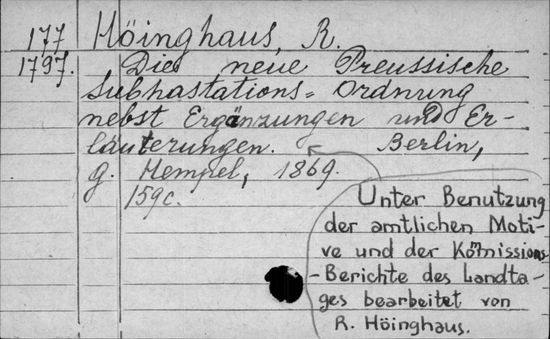 177 Höinghaus, R.
1797. Die neue Preussische
Subhastations= Ordnung
nebst Ergänzungen und Er-
läuterungen. Berlin,
g. Hempel, 1869.
159c.
Unter Benutzung
der amtlichen Moti-
ve und der Kommissions
-Berichte des Landta-
ges bearbeitet von
R. Höinghaus.